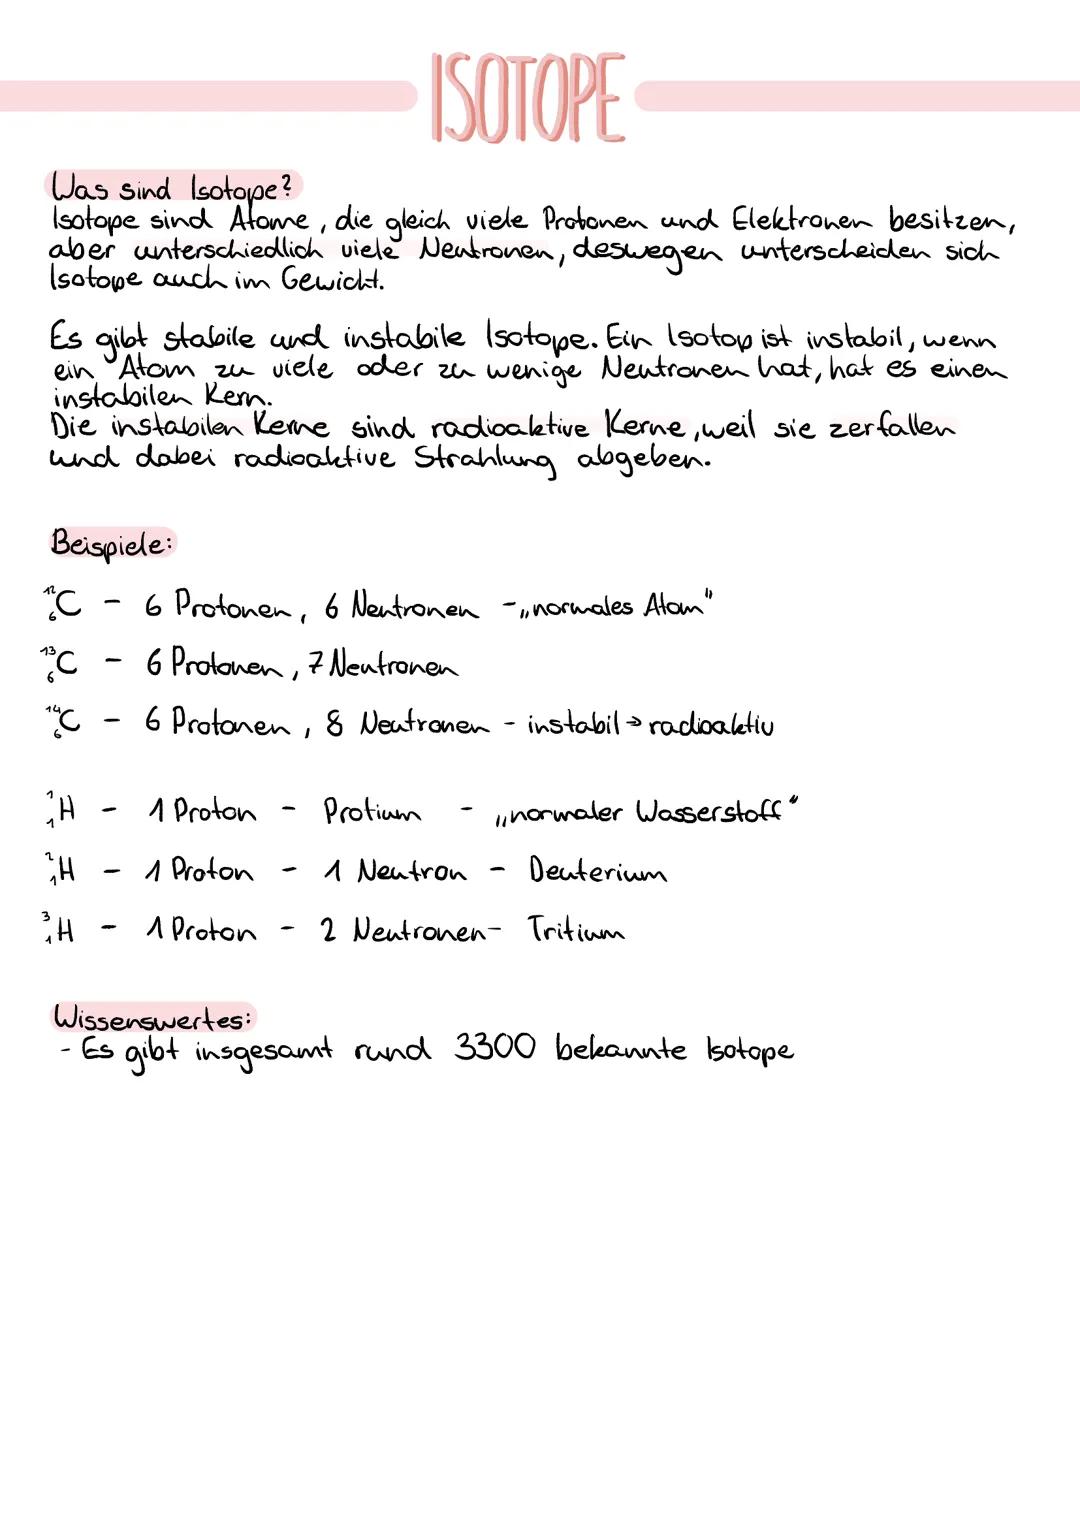 ISOTOPE
Was sind Isotope?
Isotope sind Atome, die gleich viele Protonen und Elektronen besitzen,
aber unterschiedlich viele Neutronen, deswegen unterscheiden sich
Isotope auch im Gewicht.
Es gibt stabile und instabile Isotope. Ein Isotop ist instabil, wenn
ein Atom zu viele oder zu wenige Neutronen hat, hat es einen
instabilen Kern.
Die instabilen Kerne sind radioaktive Kerne, weil sie zerfallen
und dabei radioaktive Strahlung abgeben.
Beispiele:
¹²₆C - 6 Protonen, 6 Neutronen - „normales Atom"
¹³₆C - 6 Protonen, 7 Neutronen
¹⁴₆C - 6 Protonen, 8 Neutronen - instabil → radioaktiv
¹₁H - 1 Proton - Protium - „normaler Wasserstoff"
²₁H - 1 Proton - 1 Neutron - Deuterium
³₁H - 1 Proton - 2 Neutronen - Tritium
Wissenswertes:
- Es gibt insgesamt rund 3300 bekannte Isotope